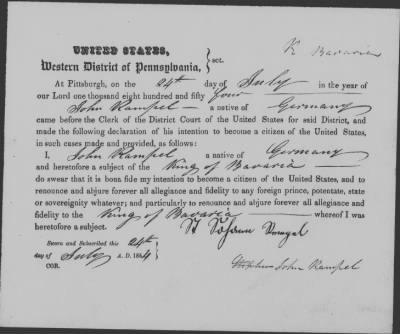 K Bavaria
UNITED STATES,
Western District of Pennsylvania, } sct.
At Pittsburgh, on the 24th day of July in the year of
our Lord one thousand eight hundred and fifty four
John Rampel a native of Germany
came before the Clerk of the District Court of the United States for said District, and
made the following declaration of his intention to become a citizen of the United States,
in such cases made and provided, as follows:
I, John Rampel a native of Germany
and heretofore a subject of the King of Bavaria
do swear that it is bona fide my intention to become a citizen of the United States, and to
renounce and abjure forever all allegiance and fidelity to any foreign prince, potentate, state
or sovereignty whatever; and particularly to renounce and abjure forever all allegiance and
fidelity to the King of Bavaria whereof I was
heretofore a subject.
Sworn and Subscribed this 24th
day of July A. D. 1854
COR.
John Rampel